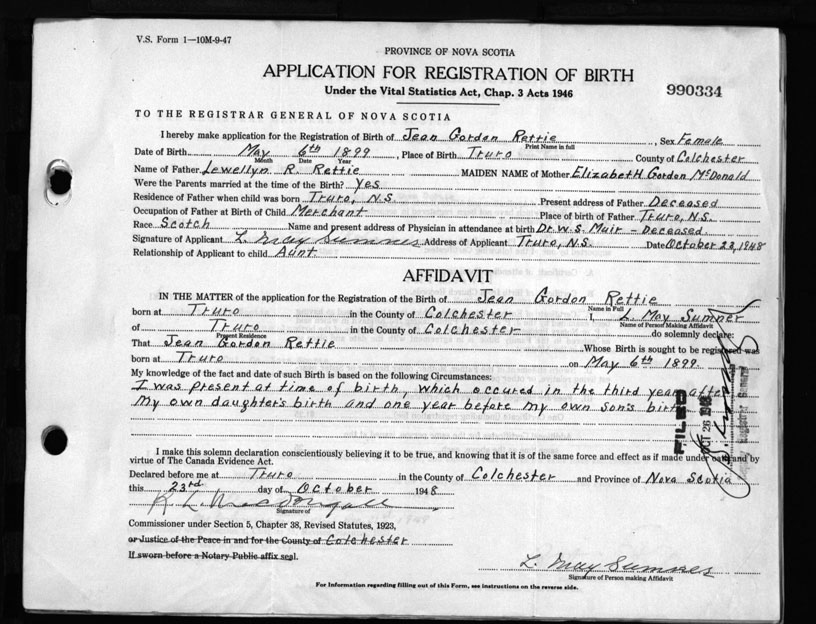 V.S. Form 1—10M-9-47
PROVINCE OF NOVA SCOTIA
APPLICATION FOR REGISTRATION OF BIRTH
Under the Vital Statistics Act, Chap. 3 Acts 1946
990334
TO THE REGISTRAR GENERAL OF NOVA SCOTIA
I hereby make application for the Registration of Birth of Jean Gordon Rettie, Sex Female
Print Name in full
Date of Birth May 6th 1899, Place of Birth Truro County of Colchester
Month Date Year
Name of Father Lewellyn R. Rettie MAIDEN NAME of Mother Elizabeth Gordon McDonald
Were the Parents married at the time of the Birth? Yes
Residence of Father when child was born Truro, N.S. Present address of Father Deceased
Occupation of Father at Birth of Child Merchant Place of birth of Father Truro, N.S.
Race Scotch Name and present address of Physician in attendance at birth Dr. W.S. Muir - Deceased.
Signature of Applicant L. May Sumner Address of Applicant Truro, N.S. Date October 23, 1948
Relationship of Applicant to child Aunt
AFFIDAVIT
IN THE MATTER of the application for the Registration of the Birth of Jean Gordon Rettie
Name in Full
born at Truro in the County of Colchester I, L. May Sumner
Name of Person Making Affidavit
of Truro in the County of Colchester do solemnly declare:
Present Residence
That Jean Gordon Rettie Whose Birth is sought to be registered was
born at Truro on May 6th 1899
My knowledge of the fact and date of such Birth is based on the following Circumstances:
I was present at time of birth, which occured in the third year after
My own daughter's birth and one year before my own son's birth
FILED
OCT 26 1948
I make this solemn declaration conscientiously believing it to be true, and knowing that it is of the same force and effect as if made under oath and by
virtue of The Canada Evidence Act.
Declared before me at Truro in the County of Colchester and Province of Nova Scotia
this 23rd day of October 1948
K. L. MacDougall
Signature of
Commissioner under Section 5, Chapter 38, Revised Statutes, 1923,
or Justice of the Peace in and for the County of Colchester
If sworn before a Notary Public affix seal.
L. May Sumner
Signature of Person making Affidavit
For Information regarding filling out of this Form, see instructions on the reverse side.